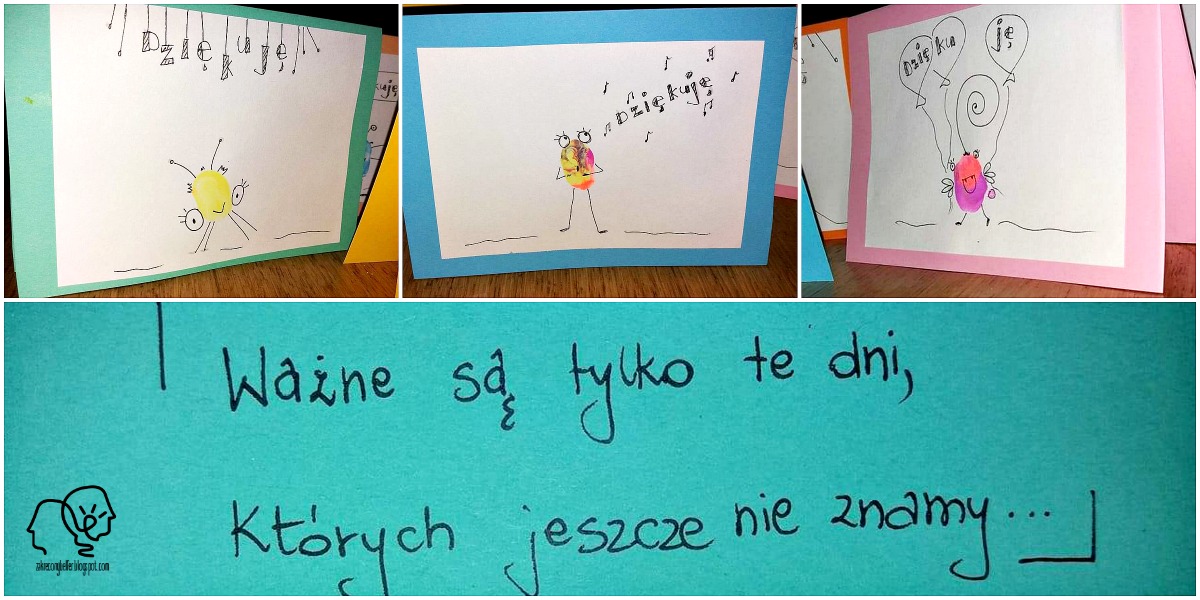 Dziękuję
Dziękuję
Dzięku
ję
Ważne są tylko te dni,
Których jeszcze nie znamy...
zakreconybelfer.blogspot.com